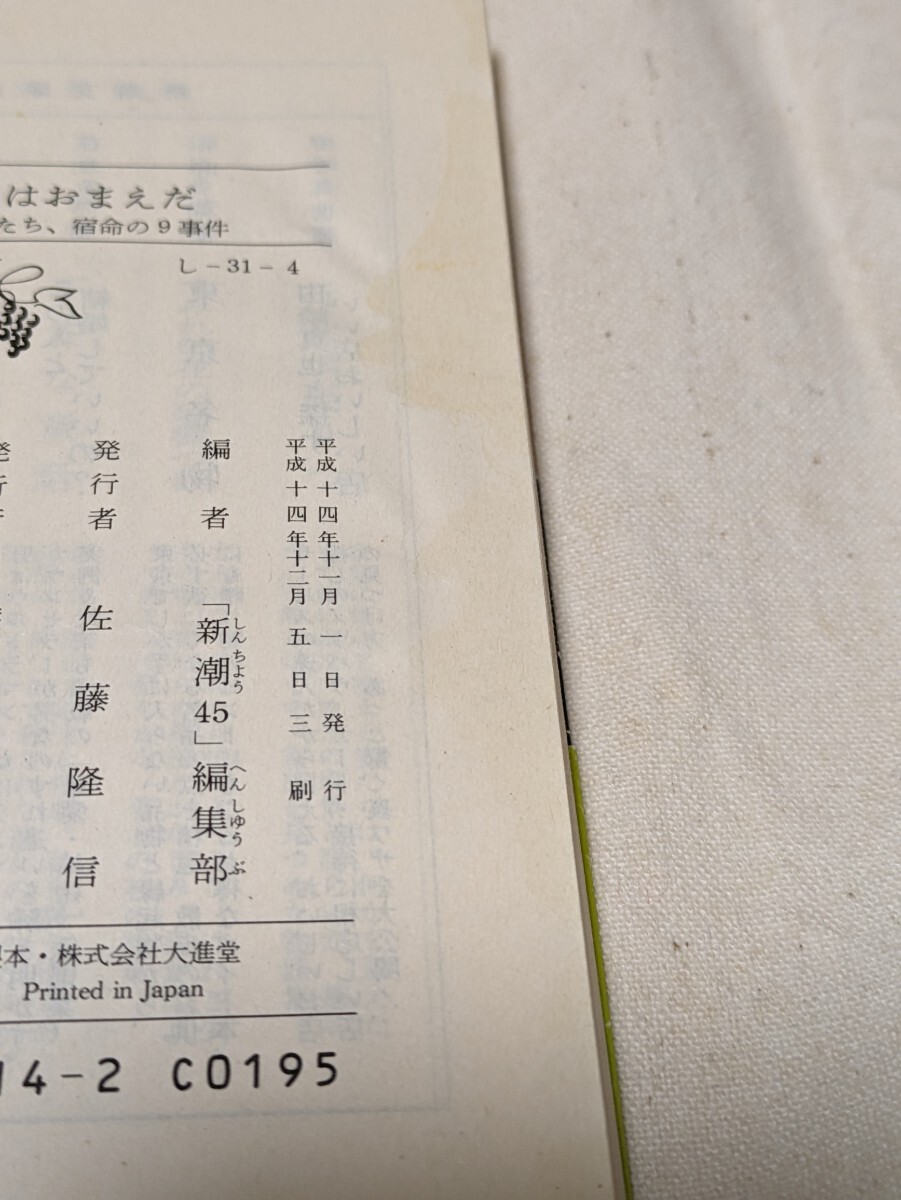 はおまえだ
たち、宿命の9事件
し-31-4
平成十四年十一月一日発行
平成十四年十二月五日三刷
編者 「新潮45」編集部
しんちよう へんしゆうぶ
発行者 佐藤隆信
発行
本・株式会社大進堂
Printed in Japan
14-2 C0195